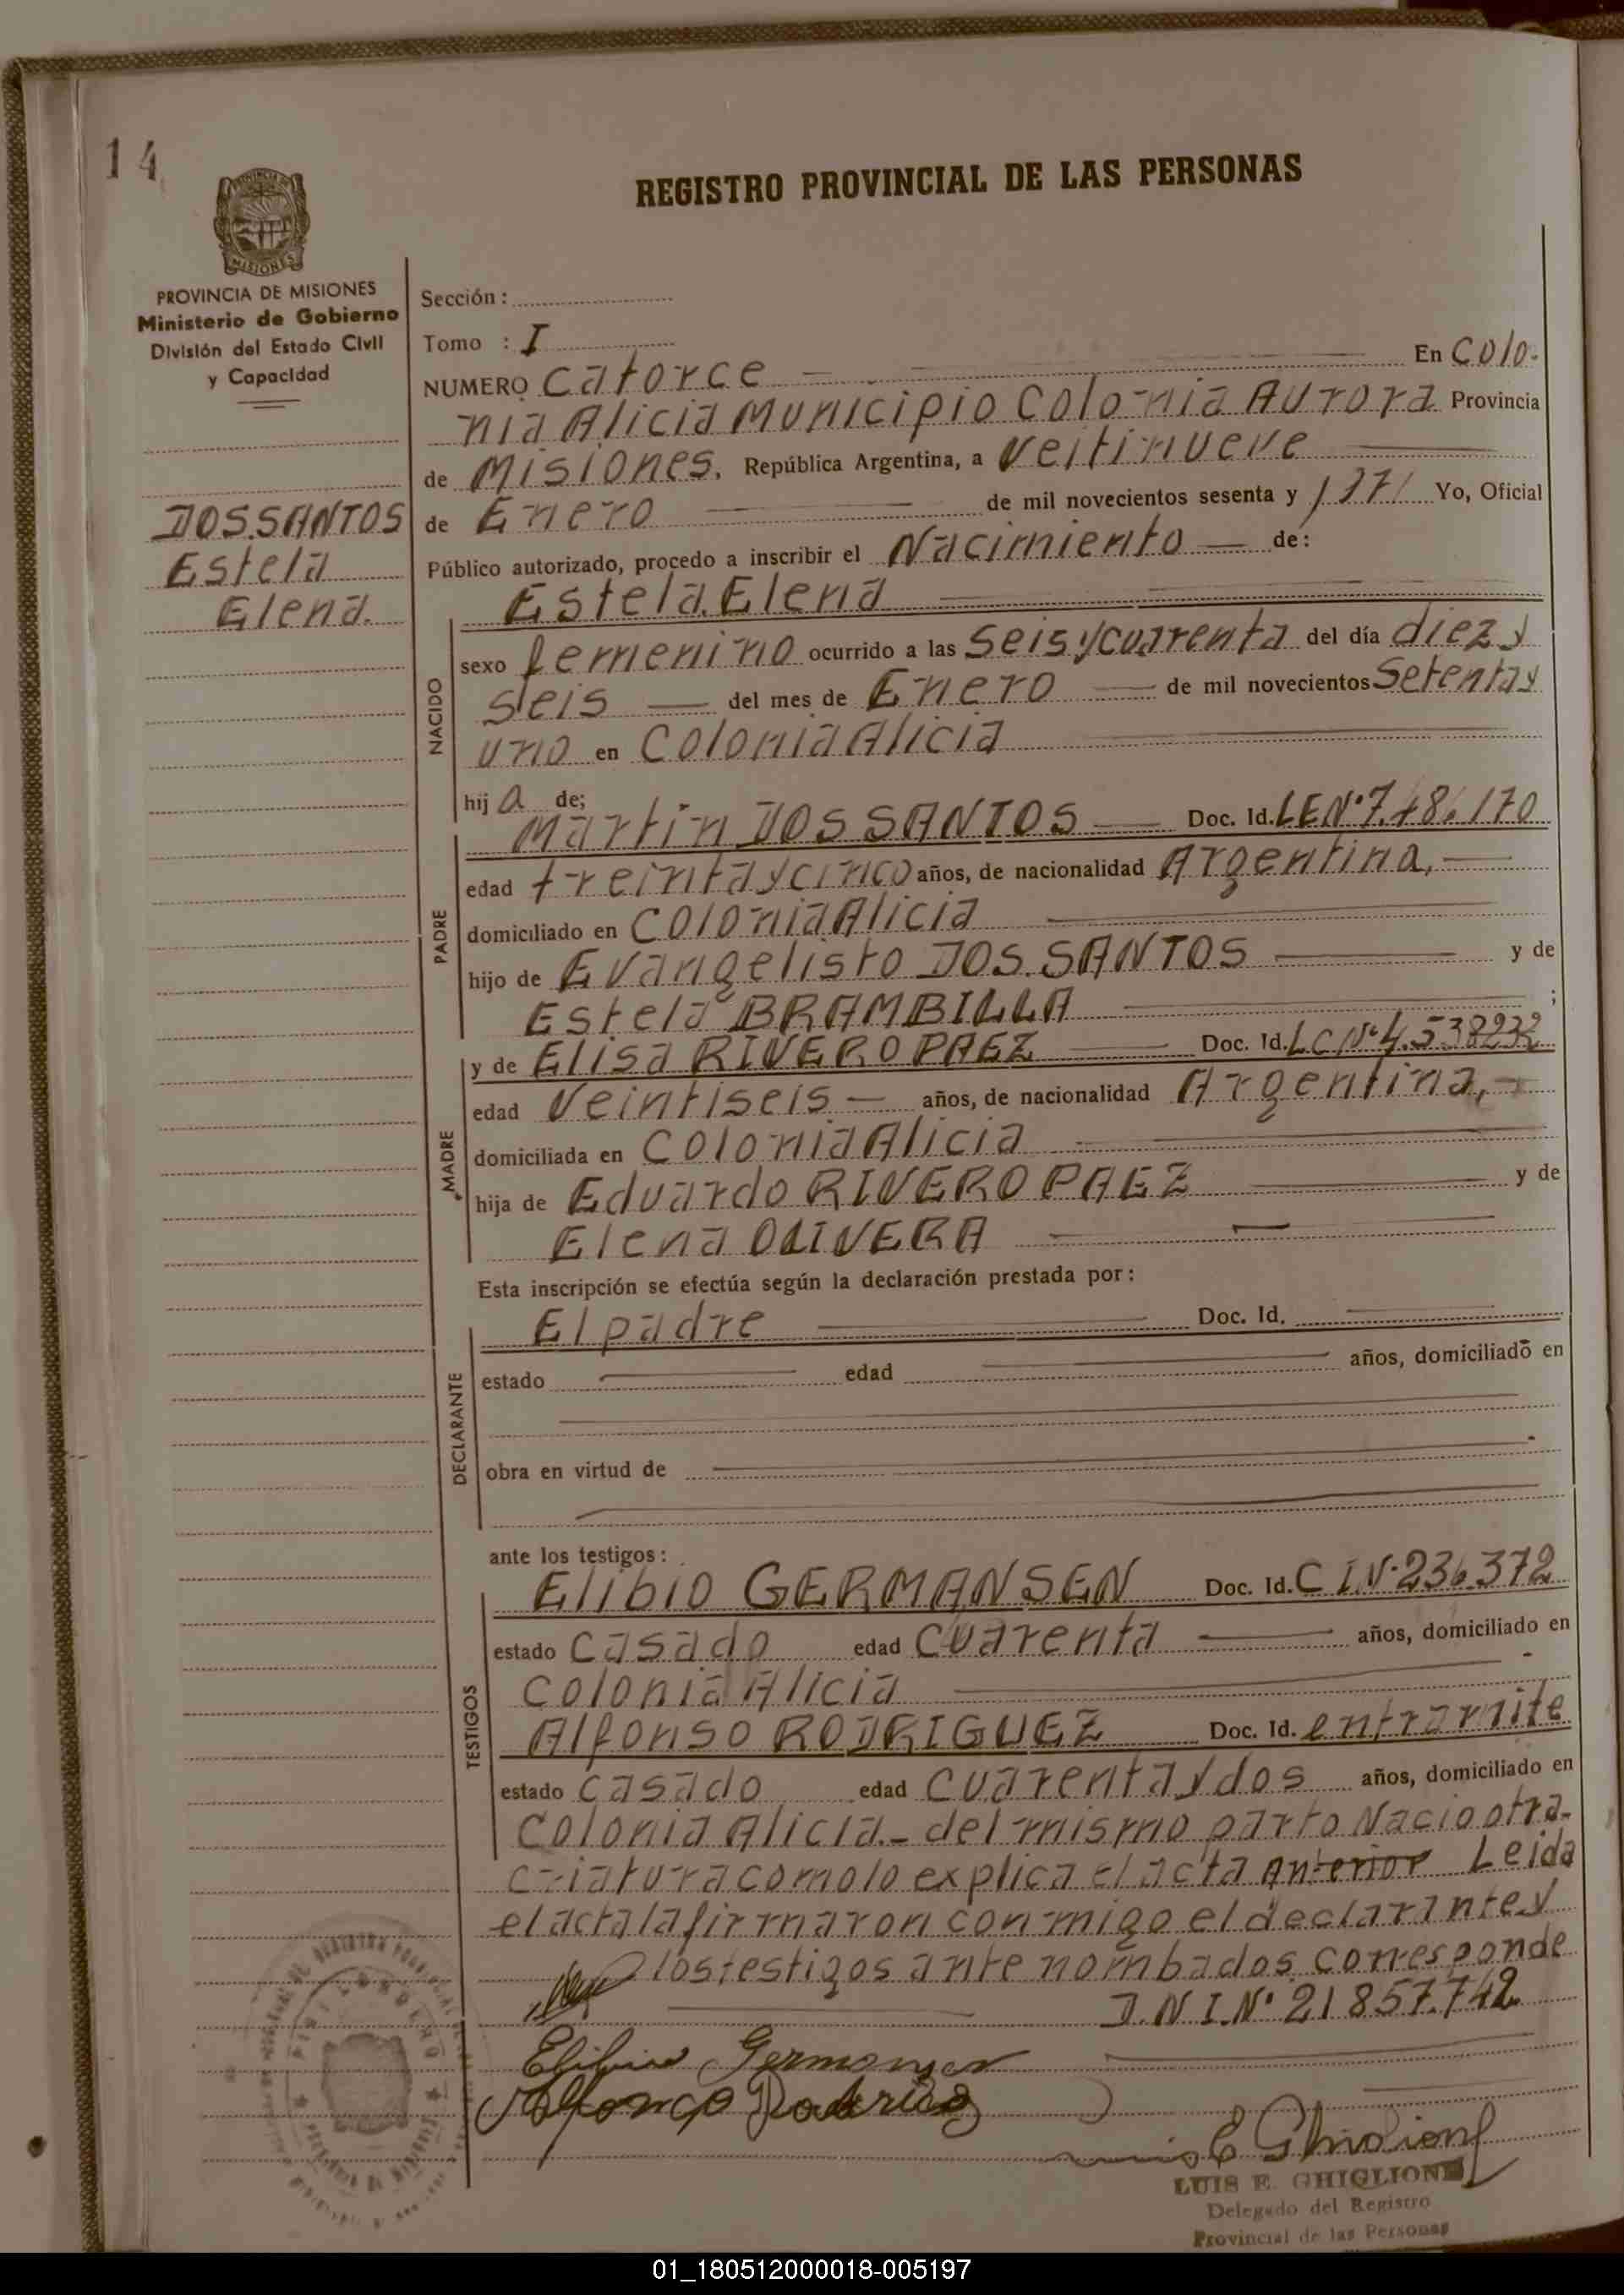 14
REGISTRO PROVINCIAL DE LAS PERSONAS
PROVINCIA DE MISIONES
Ministerio de Gobierno
División del Estado Civil
y Capacidad
DOS.SANTOS
Estela
Elena.
Sección :
Tomo : I
NUMERO catorce En Colo-
nia Alicia Municipio Colonia Aurora Provincia
de Misiones. República Argentina, a Veitinueve
de Enero de mil novecientos sesenta y 1971 Yo, Oficial
Público autorizado, procedo a inscribir el Nacimiento de:
Estela Elena
NACIDO
sexo femenino ocurrido a las seis y cuarenta del día diez y
seis del mes de Enero de mil novecientos Setenta y
uno en Colonia Alicia
hij a de;
PADRE
Martin DOS SANTOS Doc. Id. LEN° 7.486.170
edad treinta y cinco años, de nacionalidad Argentina,
domiciliado en Colonia Alicia
hijo de Evangelisto DOS.SANTOS y de
Estela BRAMBILLA ;
MADRE
y de Elisa RIVERO PAEZ Doc. Id. LC N° 4.538232
edad Veintiseis años, de nacionalidad Argentina,
domiciliada en Colonia Alicia
hija de Eduardo RIVERO PAEZ y de
Elena OLIVERA
Esta inscripción se efectúa según la declaración prestada por :
DECLARANTE
El padre Doc. Id.
estado edad años, domiciliado en
obra en virtud de
ante los testigos :
TESTIGOS
Elibio GERMANSEN Doc. Id. C I.N° 236.372
estado casado edad cuarenta años, domiciliado en
Colonia Alicia
Alfonso RODRIGUEZ Doc. Id. entramite
estado casado edad cuarenta y dos años, domiciliado en
Colonia Alicia.- del mismo parto Nacio otra-
criatura como lo explica el acta anterior Leida
el acta la firmaron conmigo el declarante y
los testigos ante nombados. corresponde
D.N.I.N° 21857.742
LUIS E. GHIGLIONE
Delegado del Registro
Provincial de las Personas
01_180512000018-005197